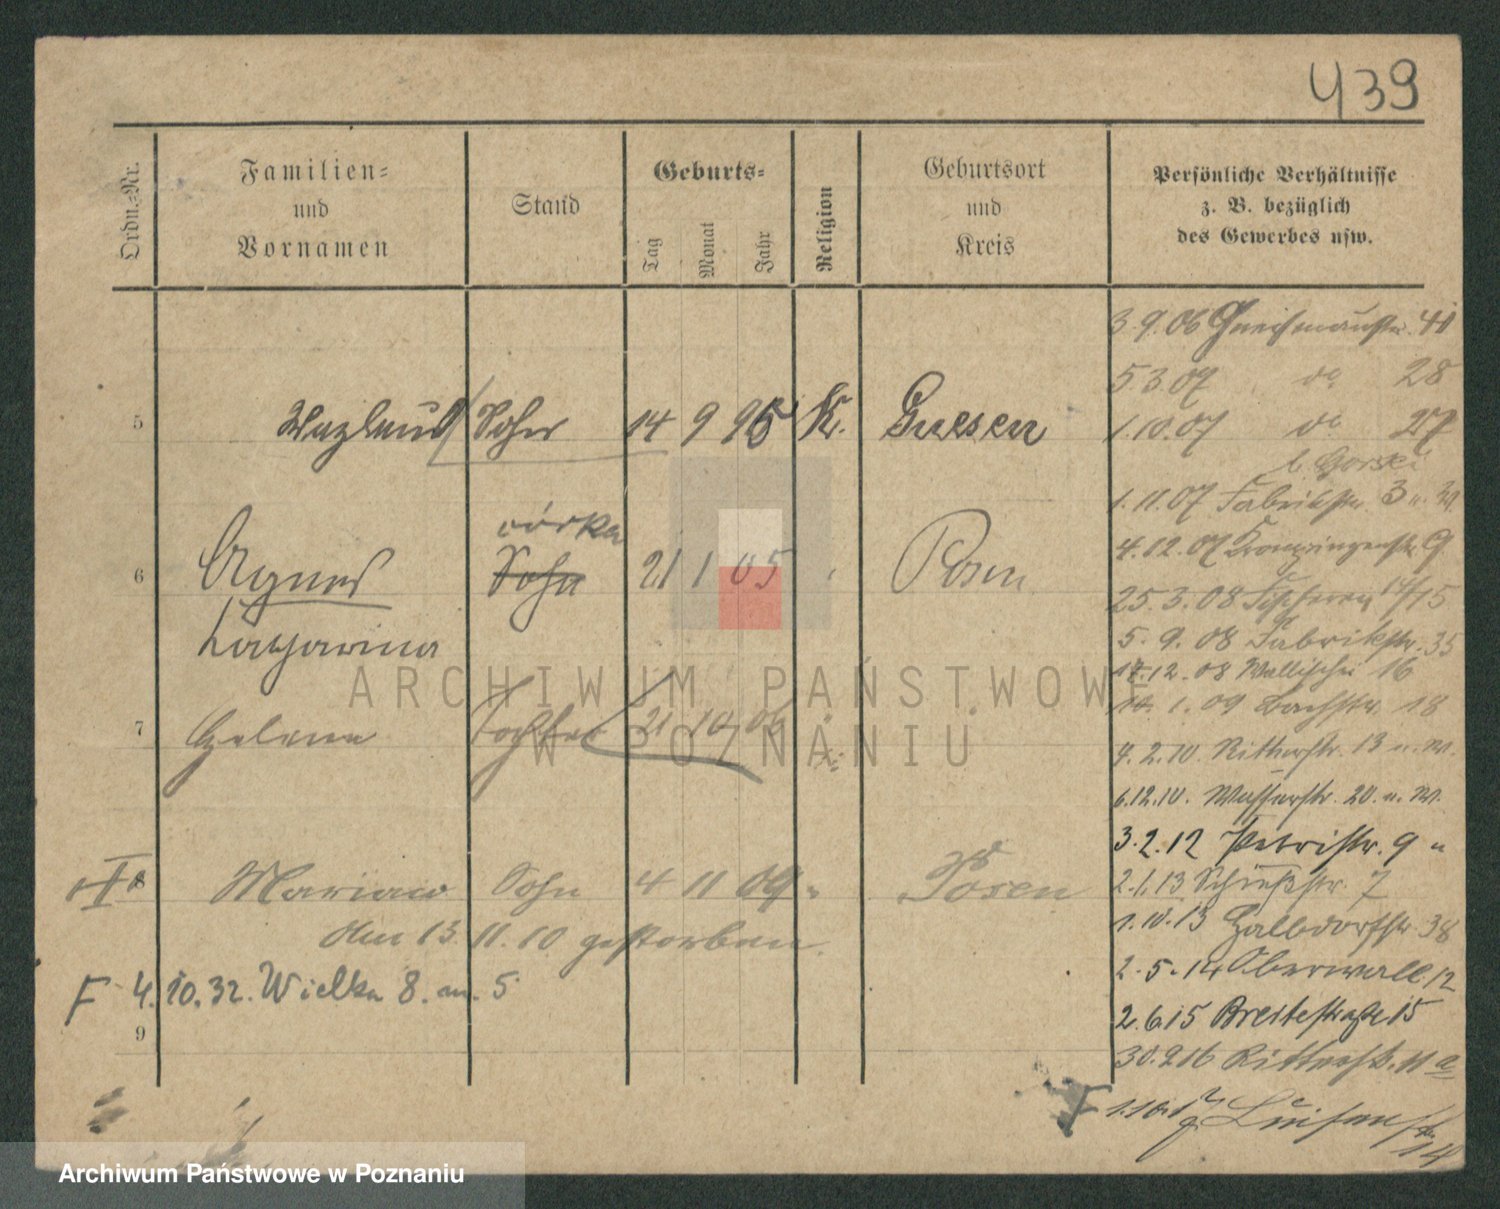 439
Ordn.-Nr.
Familien-
und
Vornamen
Stand
Geburts-
Tag
Monat
Jahr
Religion
Geburtsort
und
Kreis
Persönliche Verhältnisse
z. B. bezüglich
des Gewerbes usw.
3.9.06 Gneisenaustr. 41
5 3 07 do 28
1.10.07 do 27
b. Gorski
5 Wazlaus Sohn 14 9 96 K. Gnesen
1.11.07 Fabrikstr. 3
córka
4.12.07 Kronprinzenstr. 9
6 Agnes Sohn 21 1 05 Posen
25.3.08 Fischerei 14/15
Katharina
5.9.08 Fabrikstr. 35
17.12.08 Wallischei 16
14.1.09 Bachstr. 18
7 Helena Tochter 21 10 06
4.2.10. Ritterstr. 13
6.12.10. Wasserstr. 20.
3.2.12 Petristr. 9
8 Marian Sohn 4 11 09 Posen
2.1.13 Schießstr. 7
am 13 11.10 gestorben
1.10.13 Halbdorfstr 38
F 4.10.32. Wielka 8. m. 5
2.5.14 Oberwall 12
2.6.15 Breitestraße 15
9
30.9.16 Ritterstr. 11 a
F 1.10.17 Luisenstr
14
ARCHIWUM PAŃSTWOWE
W POZNANIU
Archiwum Państwowe w Poznaniu